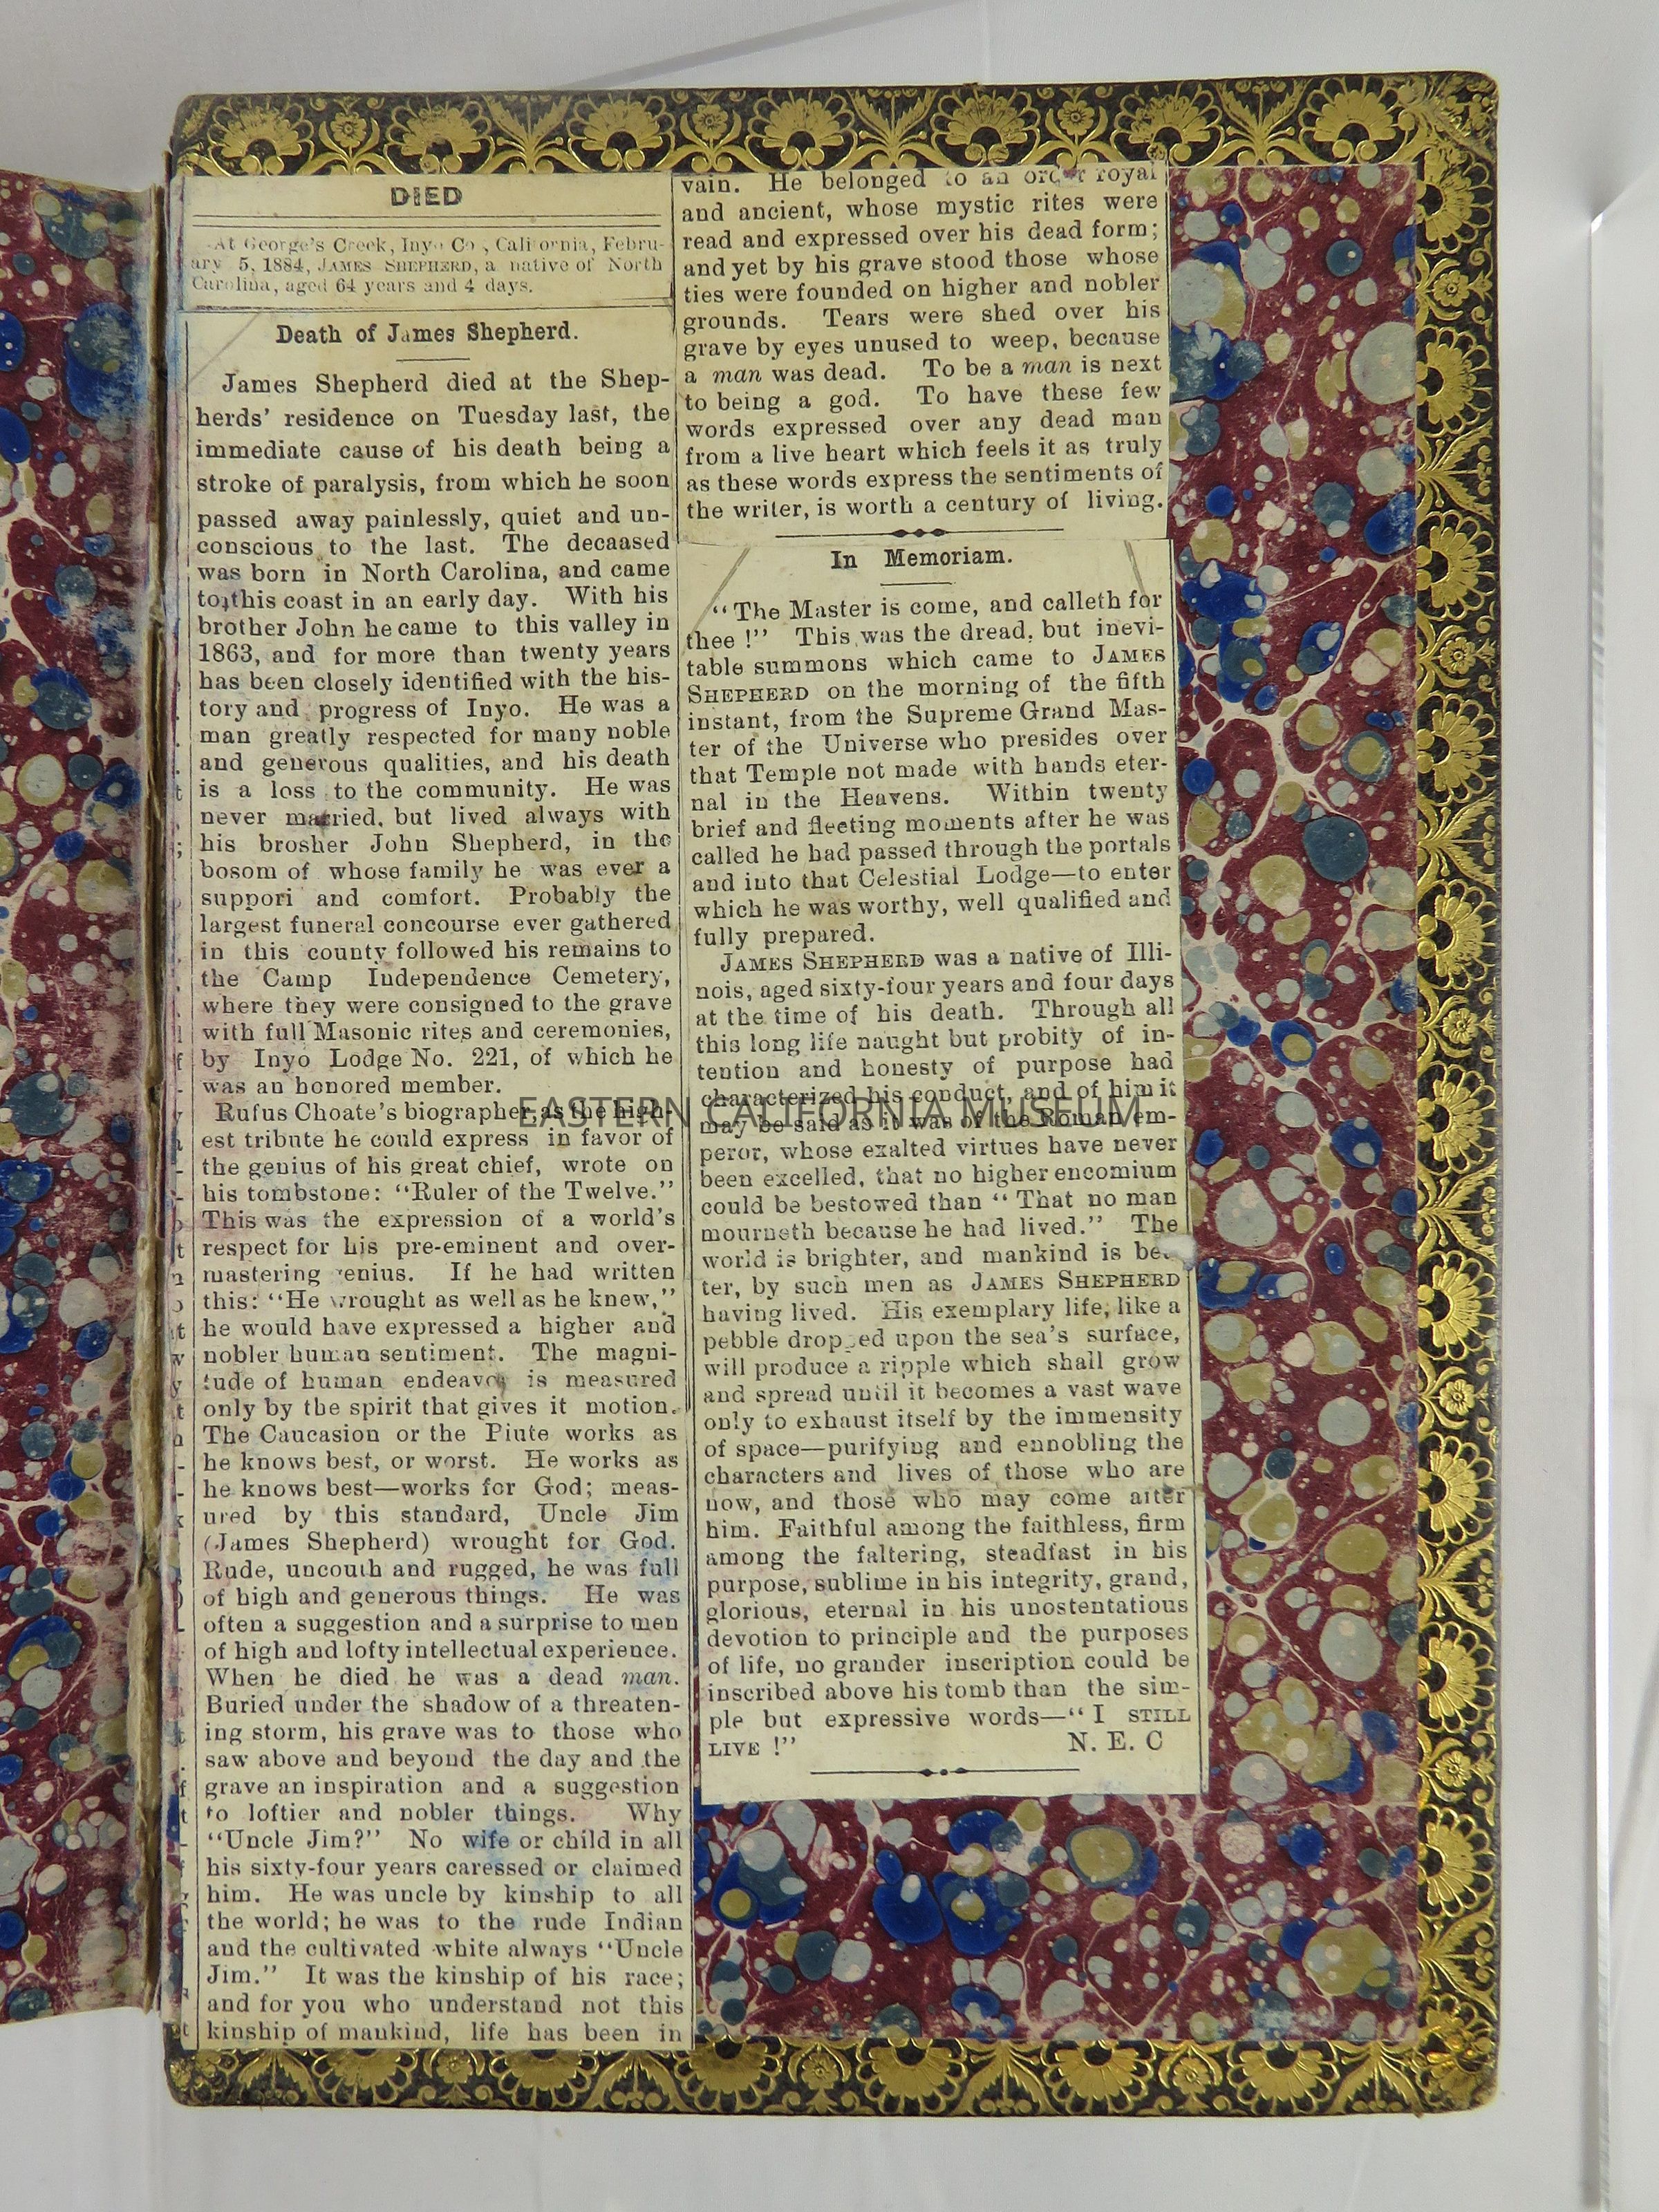 DIED
At George's Creek, Inyo Co, California, Febru-
ary 5, 1884, JAMES SHEPHERD, a native of North
Carolina, aged 64 years and 4 days.
Death of James Shepherd.
James Shepherd died at the Shep-
herds' residence on Tuesday last, the
immediate cause of his death being a
stroke of paralysis, from which he soon
passed away painlessly, quiet and un-
conscious to the last. The decaased
was born in North Carolina, and came
to this coast in an early day. With his
brother John he came to this valley in
1863, and for more than twenty years
has been closely identified with the his-
tory and progress of Inyo. He was a
man greatly respected for many noble
and generous qualities, and his death
is a loss to the community. He was
never married, but lived always with
his brosher John Shepherd, in the
bosom of whose family he was ever a
suppori and comfort. Probably the
largest funeral concourse ever gathered
in this county followed his remains to
the Camp Independence Cemetery,
where they were consigned to the grave
with full Masonic rites and ceremonies,
by Inyo Lodge No. 221, of which he
was an honored member.
Rufus Choate's biographer, as the high-
est tribute he could express in favor of
the genius of his great chief, wrote on
his tombstone: "Ruler of the Twelve."
This was the expression of a world's
respect for his pre-eminent and over-
mastering genius. If he had written
this: "He wrought as well as he knew,"
he would have expressed a higher and
nobler human sentiment. The magni-
tude of human endeavor is measured
only by the spirit that gives it motion.
The Caucasion or the Piute works as
he knows best, or worst. He works as
he knows best—works for God; meas-
ured by this standard, Uncle Jim
(James Shepherd) wrought for God.
Rude, uncouth and rugged, he was full
of high and generous things. He was
often a suggestion and a surprise to men
of high and lofty intellectual experience.
When he died he was a dead man.
Buried under the shadow of a threaten-
ing storm, his grave was to those who
saw above and beyond the day and the
grave an inspiration and a suggestion
to loftier and nobler things. Why
"Uncle Jim?" No wife or child in all
his sixty-four years caressed or claimed
him. He was uncle by kinship to all
the world; he was to the rude Indian
and the cultivated white always "Uncle
Jim." It was the kinship of his race;
and for you who understand not this
kinship of mankind, life has been in
vain. He belonged to an order royal
and ancient, whose mystic rites were
read and expressed over his dead form;
and yet by his grave stood those whose
ties were founded on higher and nobler
grounds. Tears were shed over his
grave by eyes unused to weep, because
a man was dead. To be a man is next
to being a god. To have these few
words expressed over any dead man
from a live heart which feels it as truly
as these words express the sentiments of
the writer, is worth a century of living.
In Memoriam.
"The Master is come, and calleth for
thee!" This was the dread, but inevi-
table summons which came to JAMES
SHEPHERD on the morning of the fifth
instant, from the Supreme Grand Mas-
ter of the Universe who presides over
that Temple not made with hands eter-
nal in the Heavens. Within twenty
brief and fleeting moments after he was
called he had passed through the portals
and into that Celestial Lodge—to enter
which he was worthy, well qualified and
fully prepared.
JAMES SHEPHERD was a native of Illi-
nois, aged sixty-four years and four days
at the time of his death. Through all
this long life naught but probity of in-
tention and honesty of purpose had
characterized his conduct, and of him it
may be said as it was of the Roman em-
peror, whose exalted virtues have never
been excelled, that no higher encomium
could be bestowed than "That no man
mourneth because he had lived." The
world is brighter, and mankind is bet-
ter, by such men as JAMES SHEPHERD
having lived. His exemplary life, like a
pebble dropped upon the sea's surface,
will produce a ripple which shall grow
and spread until it becomes a vast wave
only to exhaust itself by the immensity
of space—purifying and ennobling the
characters and lives of those who are
now, and those who may come after
him. Faithful among the faithless, firm
among the faltering, steadfast in his
purpose, sublime in his integrity, grand,
glorious, eternal in his unostentatious
devotion to principle and the purposes
of life, no grander inscription could be
inscribed above his tomb than the sim-
ple but expressive words—"I STILL
LIVE!" N. E. C
EASTERN CALIFORNIA MUSEUM